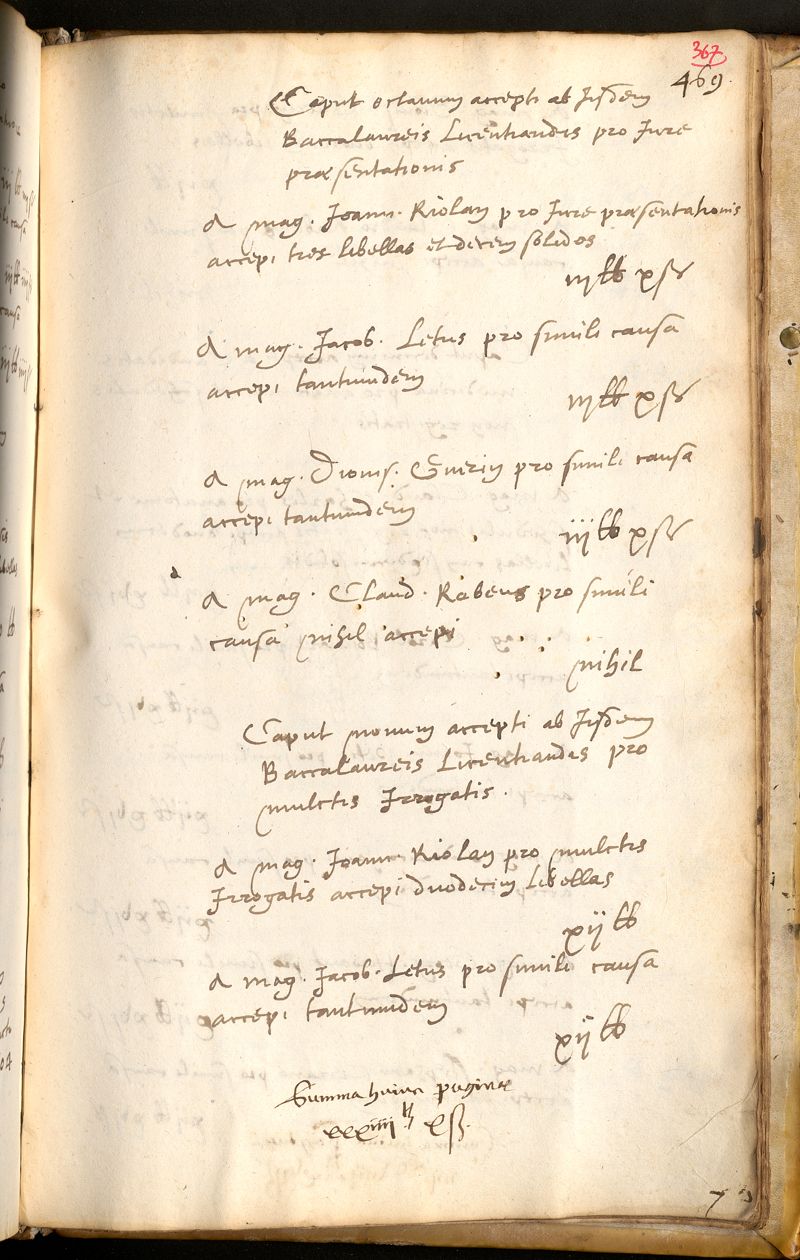 367
469.
Caput octauum accepti ab Iisdem
Baccalaureis Licentiandis pro Iure
præsentationis
A mag. Ioann. Riolan pro Iure præsentationis
accepi tres libellas et decem solidos
iij lb x sß
A mag. Jacob. Letus pro simili causa
accepi tantundem
iij lb x sß
A mag. Dionis. Guerin pro simili causa
accepi tantundem
iij lb x sß
A mag. Claud. Rabeus pro simili
causa nihil accepi
nihil
Caput nonum accepti ab Iisdem
Baccalaureis Licentiandis pro
mulctis Irrogatis.
A mag. Joann. Riolan pro mulctis
Irrogatis accepi duodecim libellas
xij lb
A mag. Jacob. Letus pro simili causa
accepi tantundem
xij lb
Summa huius paginæ
xxxiiij lb x ß.